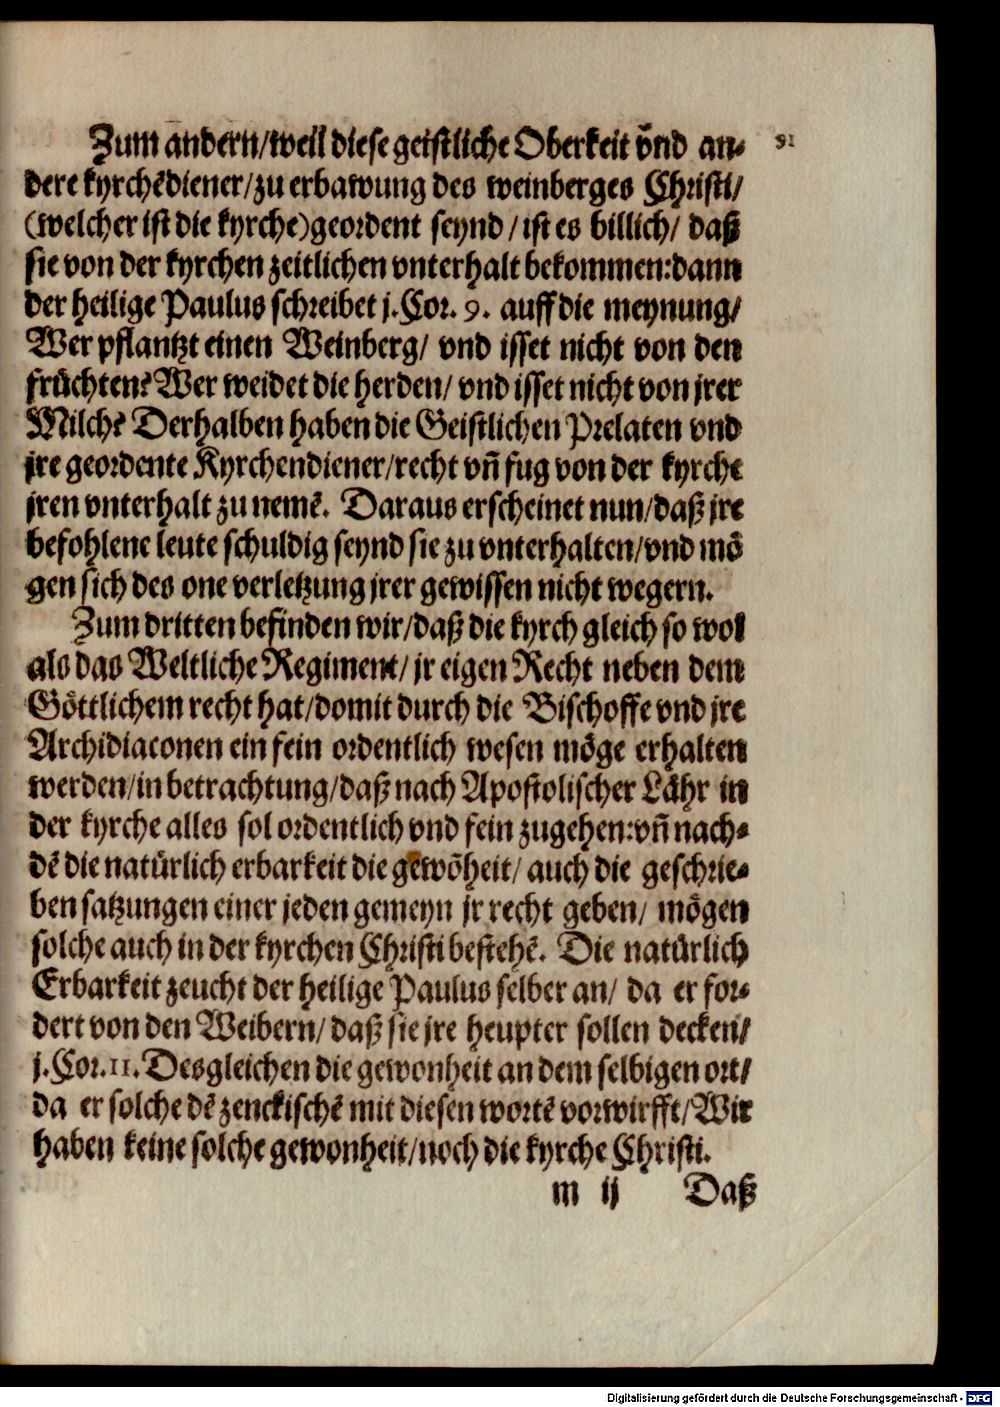 Zum andern/weil diese geistliche Oberkeit vnd an-
dere kyrchēdiener/zu erbawung des weinberges Christi/
(welcher ist die kyrche)geordent seynd/ist es billich/ daß
sie von der kyrchen zeitlichen vnterhalt bekommen:dann
der heilige Paulus schreibet j.Cor. 9. auff die meynung/
Wer pflantzt einen Weinberg/ vnd isset nicht von den
früchten? Wer weidet die herden/ vnd isset nicht von jrer
Milch? Derhalben haben die Geistlichen Prelaten vnd
jre geordente Kyrchendiener/recht vñ fug von der kyrche
jren vnterhalt zu nemē. Daraus erscheinet nun/daß jre
befohlene leute schuldig seynd sie zu vnterhalten/vnd mö
gen sich des one verletzung jrer gewissen nicht wegern.
Zum dritten befinden wir/daß die kyrch gleich so wol
als das Weltliche Regiment/ jr eigen Recht neben dem
Göttlichem recht hat/domit durch die Bischoffe vnd jre
Archidiaconen ein fein ordentlich wesen möge erhalten
werden/in betrachtung/daß nach Apostolischer Lähr in
der kyrche alles sol ordentlich vnd fein zugehen:vñ nach-
dē die natürlich erbarkeit die gewōheit/ auch die geschrie-
ben satzungen einer jeden gemeyn jr recht geben/ mögen
solche auch in der kyrchen Christi bestehē. Die natürlich
Erbarkeit zeucht der heilige Paulus selber an/ da er for-
dert von den Weibern/ daß sie jre heupter sollen decken/
j.Cor.11. Desgleichen die gewonheit an dem selbigen ort/
da er solche dē zenckischē mit diesen wortē vorwirfft/Wir
haben keine solche gewonheit/noch die kyrche Christi.
m ij Daß
Digitalisierung gefördert durch die Deutsche Forschungsgemeinschaft - DFG